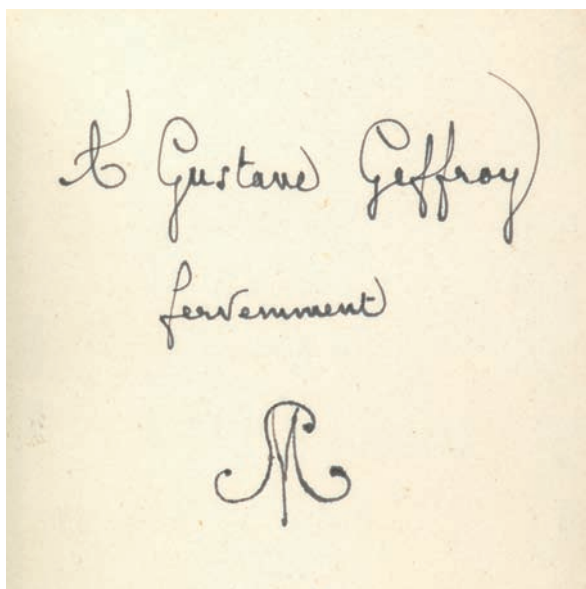 A Gustave Geffroy
fervemment